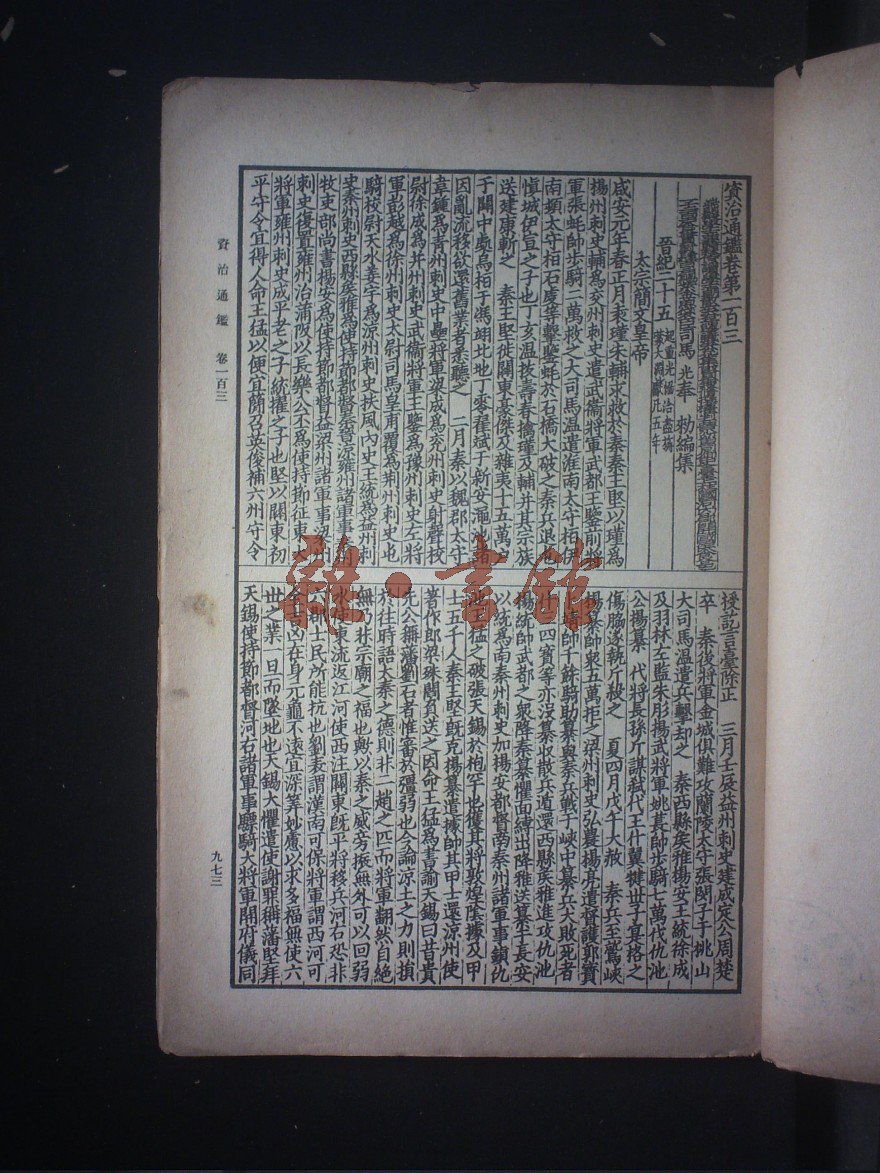 資治通鑑卷第一百三
司馬 光奉 敕編集
晉紀二十五
太宗簡文皇帝
咸安元年春正月袁瑾朱輔求救於秦秦王堅以瑾爲
揚州刺史輔爲交州刺史遣武衞將軍武都王鑒前將
軍張蚝帥步騎二萬救之大司馬溫遣淮南太守桓伊
南頓太守桓石虔等擊鑒蚝於石橋大破之秦兵退屯
愼城伊宣之子也丁亥溫拔壽春擒瑾及輔并其宗族
送建康斬之 秦王堅徙關東豪傑及雜夷十五萬戶
于關中處烏桓于馮翊北地丁零翟斌于新安澠池諸
因亂流移欲還舊業者悉聽之 二月秦以魏郡太守
韋鍾爲靑州刺史中壘將軍梁成爲兗州刺史射聲校
尉徐成爲并州刺史武衞將軍王鑒爲豫州刺史左將
軍彭越爲徐州刺史太尉司馬皇甫覆爲荆州刺史屯
騎校尉天水姜宇爲涼州刺史扶風內史王統爲益州刺
史秦州刺史西縣侯雅爲使持節都督秦晉涼雍州諸軍事秦州
牧吏部尚書楊安爲使持節都督益梁州諸軍事梁州
刺史復置雍州治蒲阪以長樂公丕爲使持節征東大
將軍雍州刺史成平老之子統擢之子也堅以關東初
平守令宜得人命王猛以便宜簡召英俊補六州守令
授訖言臺除正 三月壬辰益州刺史建成定公周楚
卒 秦後將軍金城俱難攻蘭陵太守張閔子于桃山
大司馬溫遣兵擊却之 秦西縣侯雅楊安王統徐成
及羽林左監朱肜揚武將軍姚萇帥步騎七萬伐仇池
公楊纂 代將長孫斤謀弒代王什翼犍世子寔格之
傷脇遂執斤殺之 夏四月戊午大赦 秦兵至鷲峽
楊纂帥衆五萬拒之梁州刺史弘農楊亮遣督護郭寶
卜靖帥千餘騎助纂與秦兵戰于峽中纂兵大敗死者
什三四寶等亦沒纂收散兵遁還西縣侯雅進攻仇池
楊統帥武都之衆降秦纂懼面縛出降雅送纂于長安
以統爲南秦州刺史加楊安都督南秦州諸軍事鎭仇
池王猛之破張天錫於枹罕也獲其將敦煌陰據及甲
士五千人秦王堅既克楊纂遣據帥其甲士還涼州使
著作郎梁殊閻負送之因命王猛爲書諭天錫曰昔貴
先公稱藩劉石者惟審於彊弱也今論涼土之力則損
於往時語大秦之德則非二趙之匹而將軍翻然自絕
無乃非宗廟之福也歟以秦之威旁振無外可以回弱
水使東流返江河使西注關東既平將移兵河右恐非
六郡士民所能抗也劉表謂漢南可保將軍謂西河可
全吉凶在身元龜不遠宜深筭妙慮以求多福無使六
世之業一旦而墜地也天錫大懼遣使謝罪稱藩堅拜
天錫使持節都督河右諸軍事驃騎大將軍開府儀同
資治通鑑 卷一百三
九七三